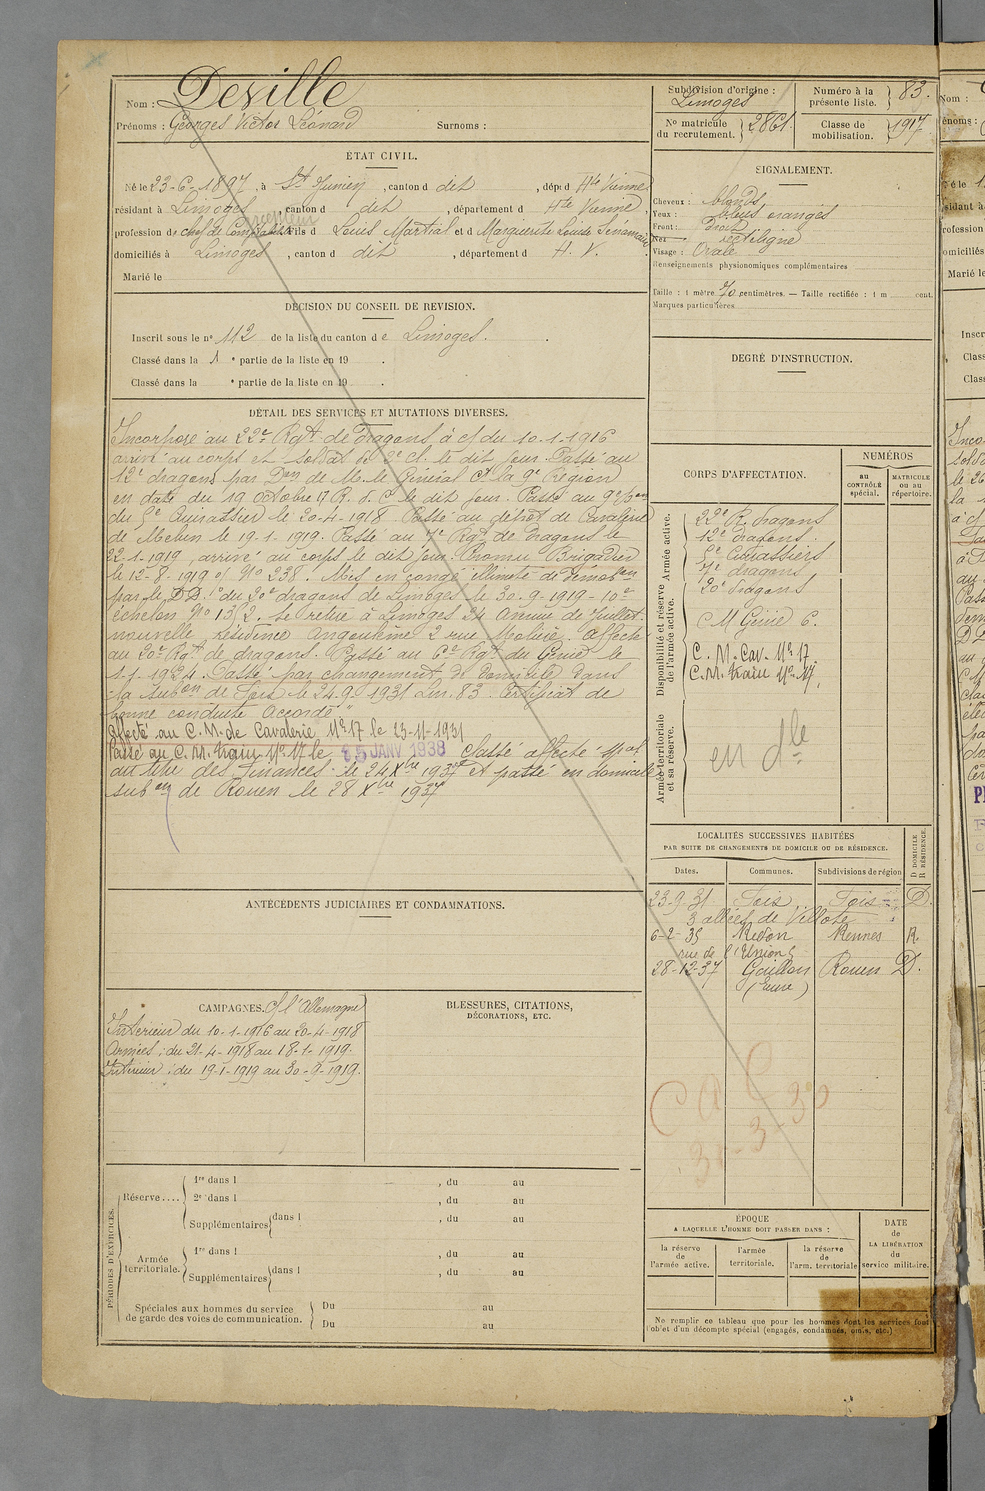 Nom : Deville
Prénoms : Georges Victor Léonard Surnoms :
ETAT CIVIL.
Né le 23-6-1897, à St Junien, canton d dit, dépt d Hte Vienne
résidant à Limoges, canton d dit, département d Hte Vienne,
percepteur
profession d chef de Comptabté fils d Louis Martial et d Marguerite Louise
domiciliés à Limoges, canton d dit, département d H. V.
Marié le
DECISION DU CONSEIL DE REVISION.
Inscrit sous le n° 112 de la liste du canton de Limoges.
Classé dans la 1 e partie de la liste en 19 .
Classé dans la e partie de la liste en 19 .
DÉTAIL DES SERVICES ET MUTATIONS DIVERSES.
Incorporé au 22e Rgt de dragons à c/ du 10-1-1916
arrivé au corps et soldat de 2e cl. le dit jour. Passé au
12e dragons par Don de M. le Général Ct la 9e Région
en date du 19 octobre 17 R. d. C. le dit jour. Passé au 9e
du 5e Cuirassier le 20-4-1918. Passé au dépôt de Cavalerie
de Melun le 19-1-1919. Passé au 7e Rgt de Dragons le
22-1-1919, arrivé au corps le dit jour. Promu Brigadier
le 12-8-1919 o/ No 238. Mis en congé illimité de démobon
par le D.D. 1° du 20e dragons de Limoges le 30-9-1919-10e
échelon No 1352. Se retire à Limoges 24 Avenue de Juillet.
nouvelle résidence Angoulême 2 rue Molière. Affecté
au 20e Rgt de dragons. Passé au 6e Rgt du Génie le
1-1-1924. Passé par changement de Domicile dans
la subon de Foix le 24.9.1931 Lm. 83. Certificat de
bonne conduite "Accordé"
Affecté au C. M. de Cavalerie No 17 le 23-11-1931
Passé au C. M. Train No 17 le 15 JANV 1938 Classé affecté spal
au titre des Finances le 24 Xbre 1937 et passé en domicile
subon de Rouen le 28 Xbre 1937
ANTÉCÉDENTS JUDICIAIRES ET CONDAMNATIONS.
CAMPAGNES. C/ l'Allemagne
Intérieur du 10-1-1916 au 20-4-1918
Armées : du 21-4-1918 au 18-1-1919.
Intérieur : du 19-1-1919 au 30-9-1919.
BLESSURES, CITATIONS,
DÉCORATIONS, ETC.
PÉRIODES D'EXERCICES.
Réserve....
1re dans l , du au
2e dans l , du au
Supplémentaires dans l , du au
Armée territoriale.
1re dans l , du au
Supplémentaires dans l , du au
Spéciales aux hommes du service
de garde des voies de communication.
Du au
Du au
Subdivision d'origine :
Limoges
Numéro à la
présente liste. 83.
No matricule
du recrutement. 2861.
Classe de
mobilisation. 1917
SIGNALEMENT.
Cheveux : blonds
Yeux : bleus orangés
Front :
Nez rectiligne
Visage : Ovale
Renseignements physionomiques complémentaires
Taille : 1 mètre 70 centimètres. — Taille rectifiée : 1 m cent.
Marques particulières
DEGRÉ D'INSTRUCTION.
CORPS D'AFFECTATION.
NUMÉROS
AU CONTRÔLE spécial.
MATRICULE ou au répertoire.
Armée active.
22e R. dragons
12e dragons.
5e Cuirassiers
7e dragons
Disponibilité et réserve
de l'armée active.
20e dragons
C M Génie 6.
C. M. Cav. No 17
C. M. Train No 17,
Armée territoriale
et sa réserve.
en dle
LOCALITÉS SUCCESSIVES HABITÉES
PAR SUITE DE CHANGEMENTS DE DOMICILE OU DE RÉSIDENCE.
D DOMICILE
R RÉSIDENCE.
Dates. Communes. Subdivisions de région
23-9-31 Foix Foix D.
3 allées de Villote
6-2-35 Redon Rennes R.
rue de l'Union
28-12-37 Gaillon Rouen D.
(Eure)
C A C
31-3-30
ÉPOQUE
A LAQUELLE L'HOMME DOIT PASSER DANS :
la réserve
de
l'armée active.
l'armée
territoriale.
la réserve
de
l'arm. territoriale
DATE
de
LA LIBÉRATION
du
service militaire.
Ne remplir ce tableau que pour les hommes dont les services font
l'objet d'un décompte spécial (engagés, condamnés, omis, etc.)